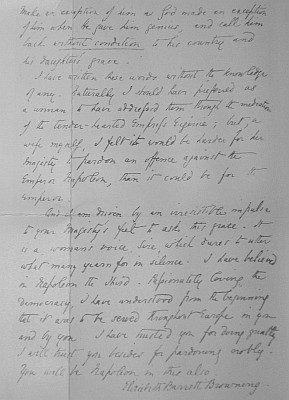 make an exception of him as God made an exception
of him when he gave him genius, and call him
back without condition to his country and
his daughter's grave.
I have written these words without the knowledge
of any. Naturally I should have preferred as
a woman to have addressed them through the mediation
of the tender-hearted Empress Eugénie; but, a
wife myself, I felt it would be harder for her
Majesty to pardon an offence against the
Emperor Napoleon, than it could be for the
emperor.
And I am driven by an irresistible impulse
to your Majesty's feet to ask this grace. It
is a woman's voice, Sire, which dares to utter
what many yearn for in silence. I have believed
in Napoleon the Third. Passionately loving the
democracy, I have understood from the beginning
that it was to be served throughout Europe in you
and by you. I have trusted you for doing greatly
I will trust you besides for pardoning nobly.
You will be Napoleon in this also.
Elizabeth Barrett Browning.